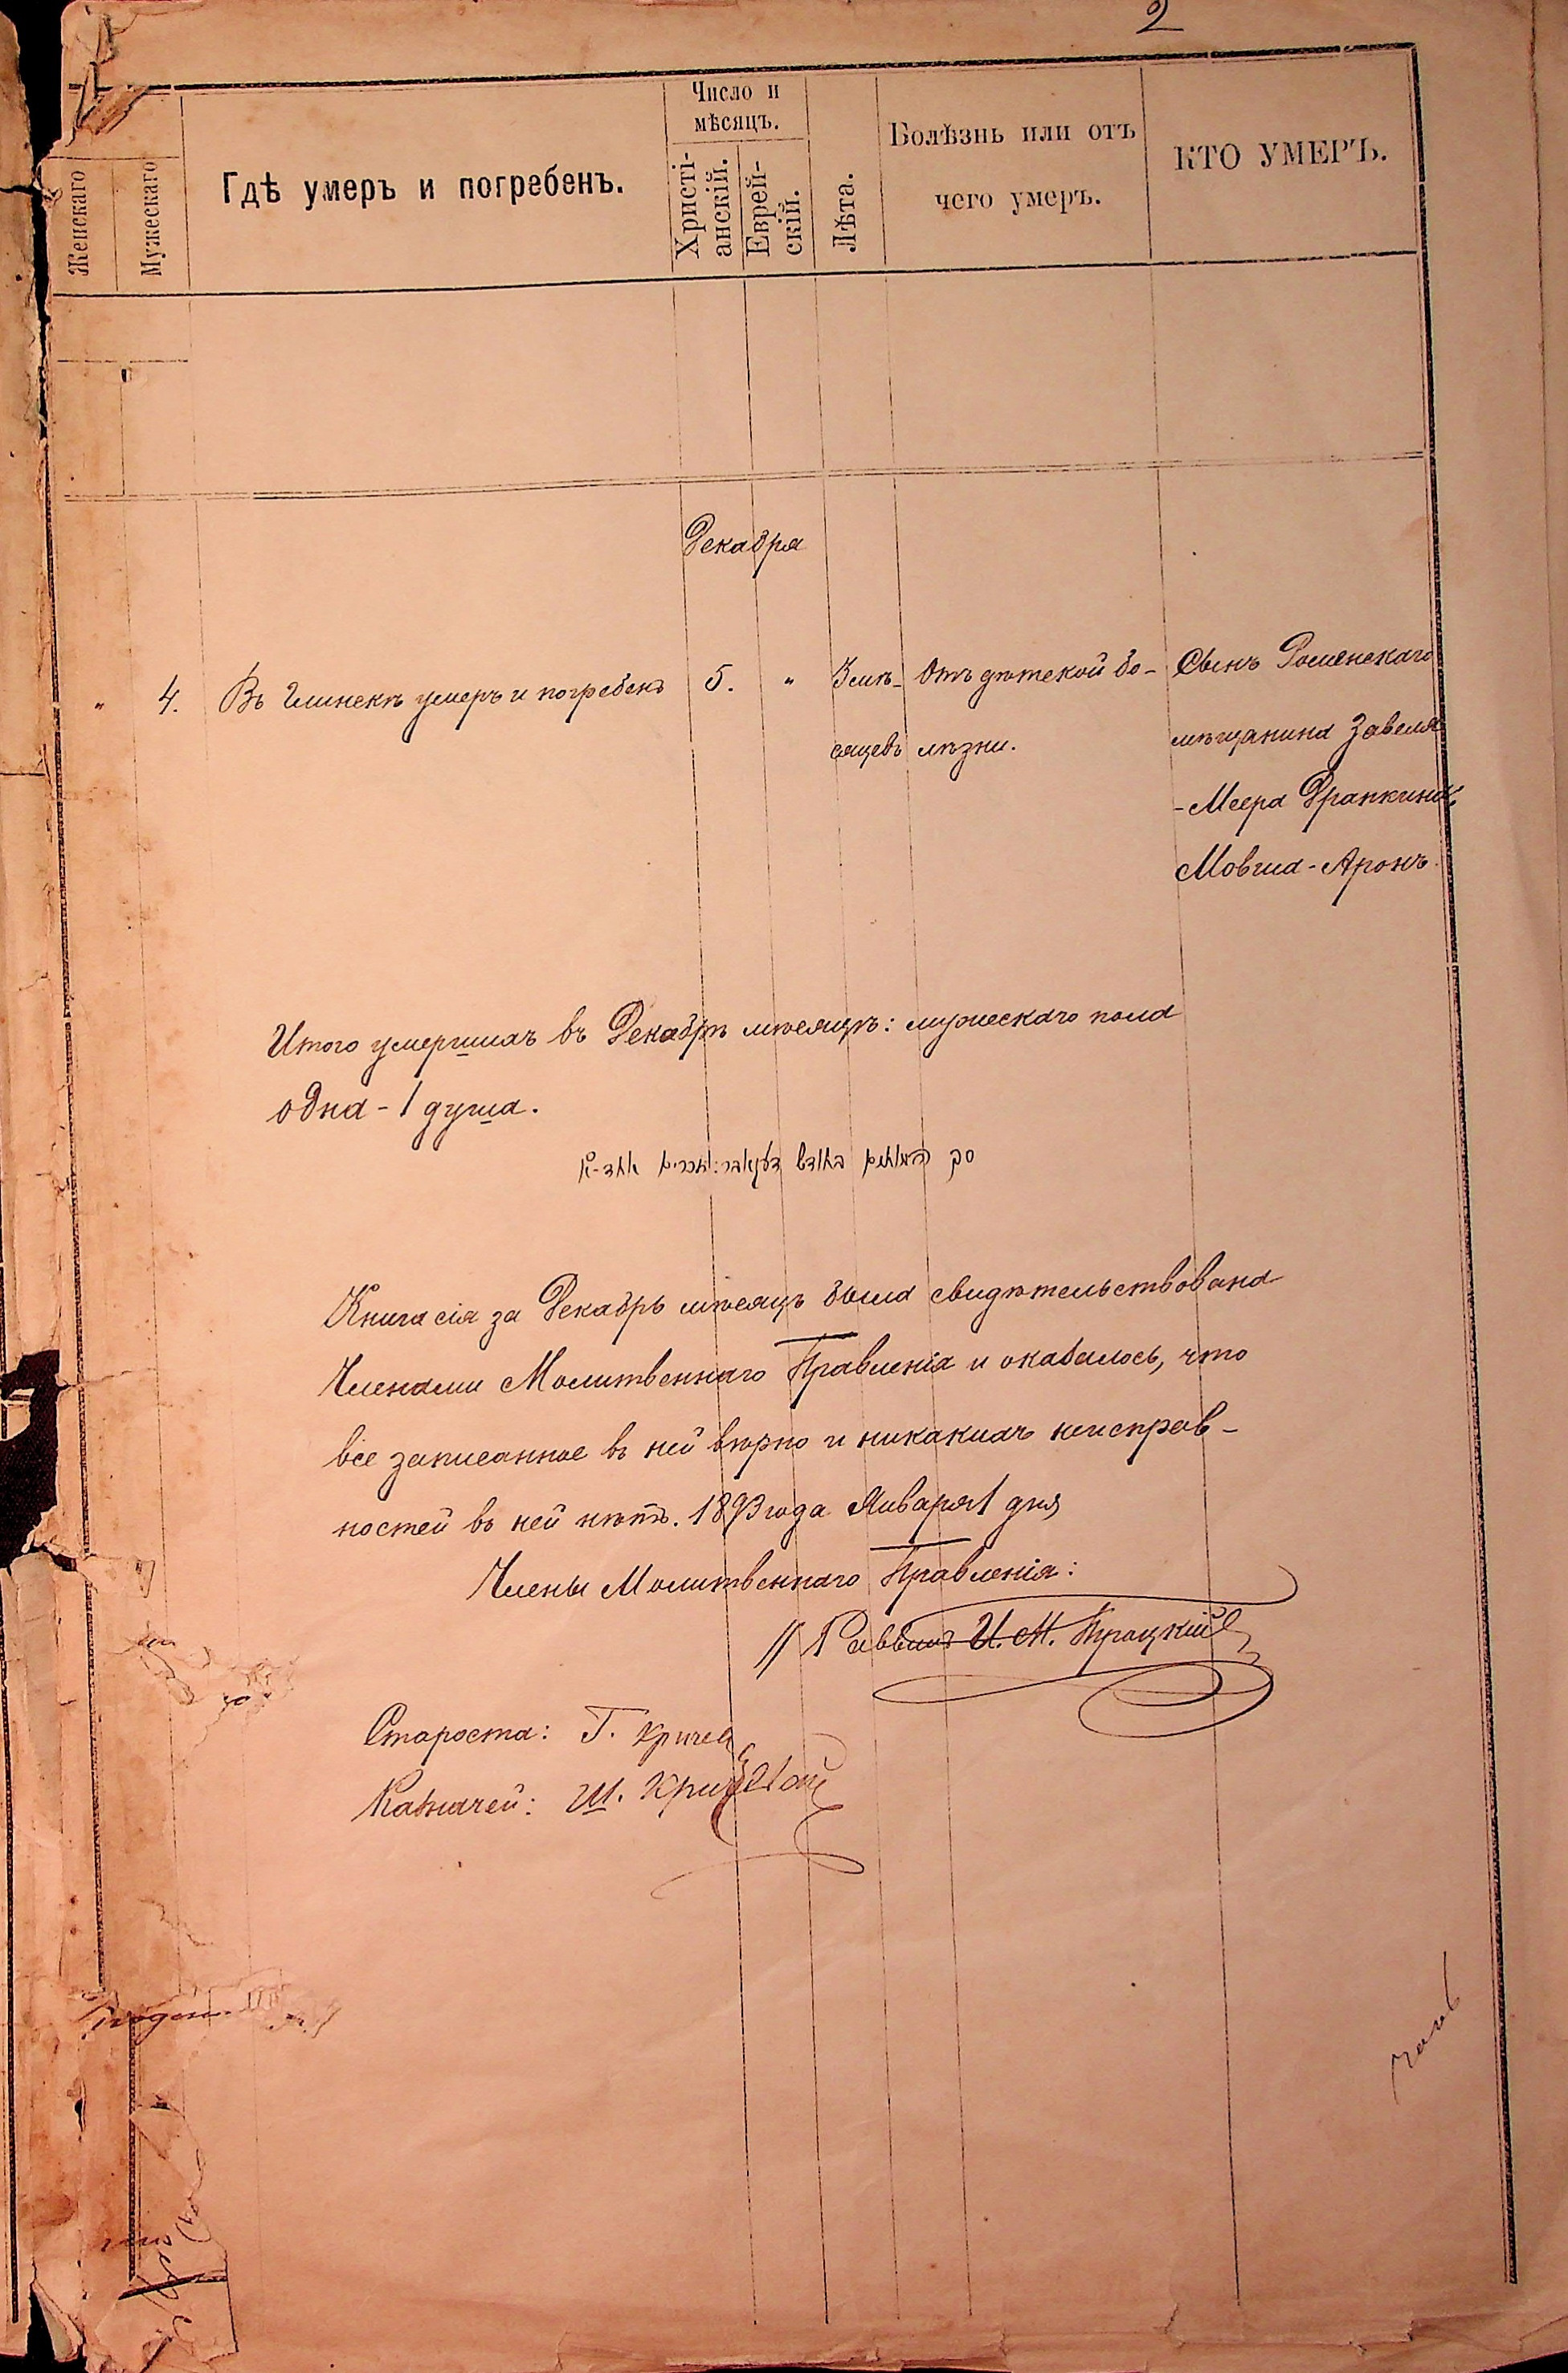 2
Женскаго
Мужескаго
Гдѣ умеръ и погребенъ.
Число и
мѣсяцъ.
Христі-
анскій.
Еврей-
скій.
Лѣта.
Болѣзнь или отъ
чего умеръ.
КТО УМЕРЪ.
Декабря
" 4. Въ Глинскѣ умеръ и погребенъ 5. " 3 мѣ- Отъ дѣтской бо- Сынъ Роменскаго
сяцевъ лѣзни. мѣщанина Завеля
-Меера Драпкина,
Мовша-Аронъ.
Итого умершихъ въ Декабрѣ мѣсяцѣ: мужескаго пола
одна - 1 душа.
סך
Книга сія за Декабрь мѣсяцъ была свидѣтельствована
Членами Молитвеннаго Правленія и оказалось, что
все записанное въ ней вѣрно и никакихъ неисправ-
ностей въ ней нѣтъ. 1893 года Января 1 дня
Члены Молитвеннаго Правленія:
Раввинъ И. М. Троцкій
Староста: Г. Кричев
Казначей: Ш.